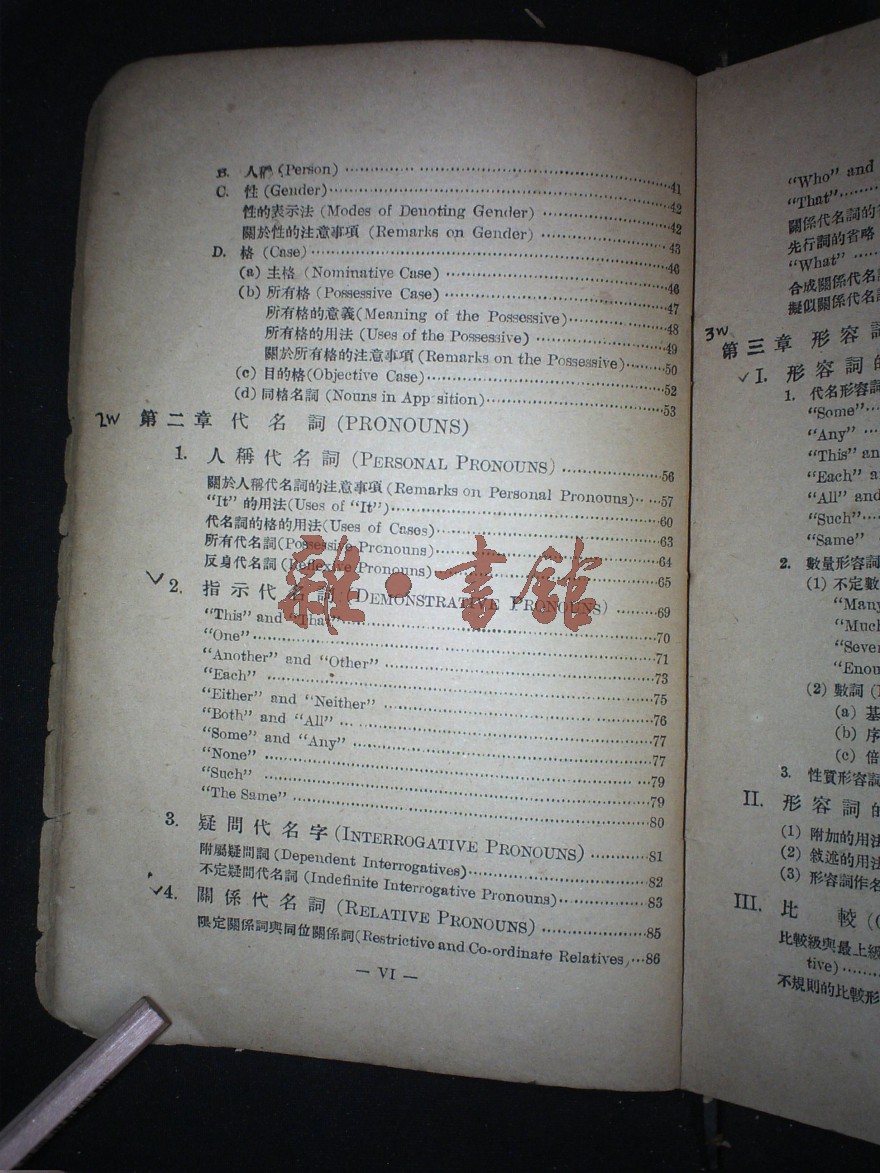 B. 人稱 (Person) 41
C. 性 (Gender) 42
性的表示法 (Modes of Denoting Gender) 42
關於性的注意事項 (Remarks on Gender) 43
D. 格 (Case) 46
(a) 主格 (Nominative Case) 46
(b) 所有格 (Possessive Case) 47
所有格的意義(Meaning of the Possessive) 48
所有格的用法 (Uses of the Possessive) 49
關於所有格的注意事項 (Remarks on the Possessive) 50
(c) 目的格(Objective Case) 52
(d) 同格名詞 (Nouns in App sition) 53
2W 第二章 代名詞 (PRONOUNS)
1. 人稱代名詞 (PERSONAL PRONOUNS) 56
關於人稱代名詞的注意事項 (Remarks on Personal Pronouns) 57
"It" 的用法(Uses of "It") 60
代名詞的格的用法(Uses of Cases) 63
所有代名詞(Possessive Pronouns) 64
反身代名詞 (Reflexive Pronouns) 65
2. 指示代名詞 (DEMONSTRATIVE PRONOUNS) 69
"This" and "That" 70
"One" 71
"Another" and "Other" 73
"Each" 75
"Either" and "Neither" 76
"Both" and "All" 77
"Some" and "Any" 77
"None" 79
"Such" 79
"The Same" 80
3. 疑問代名字 (INTERROGATIVE PRONOUNS) 81
附屬疑問詞 (Dependent Interrogatives) 82
不定疑問代名詞 (Indefinite Interrogative Pronouns) 83
4. 關係代名詞 (RELATIVE PRONOUNS) 85
限定關係詞與同位關係詞(Restrictive and Co-ordinate Relatives) 86
— VI —
雜·書館
"Who" and
"That"
關係代名詞的
先行詞的省略
"What"
合成關係代名
擬似關係代名
3W 第三章 形容
I. 形容詞的
1. 代名形容詞
"Some"
"Any"
"This" an
"Each" a
"All" and
"Such"
"Same"
2. 數量形容詞
(1) 不定數
"Many
"Much
"Sever
"Enou
(2) 數詞
(a) 基
(b) 序
(c) 倍
3. 性質形容詞
II. 形容詞的
(1) 附加的用法
(2) 敘述的用法
(3) 形容詞作名
III. 比較
比較級與最上級
tive)
不規則的比較形